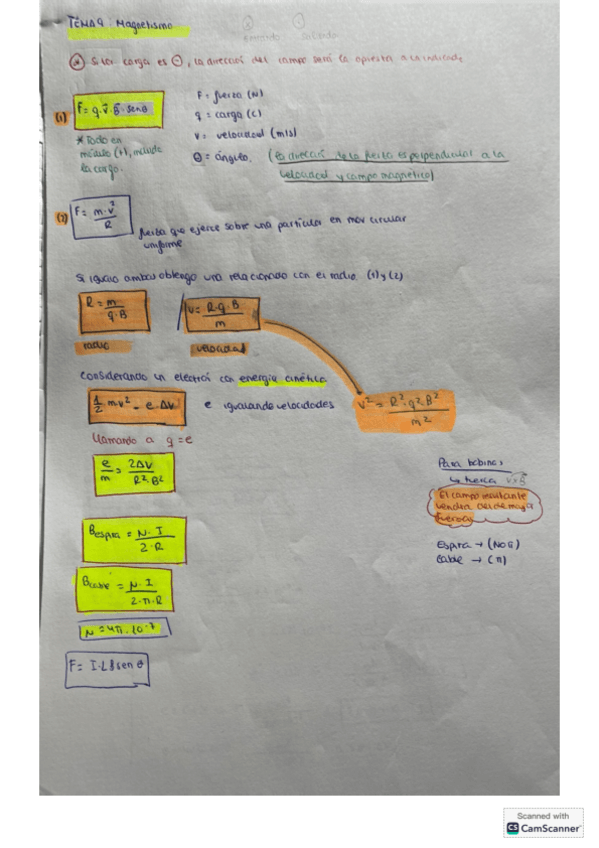 TEMA 9: Magnetismo
entrando saliendo
* Si la carga es ⊖, la dirección del campo será la opuesta a la indicada
(1) F = q·v·B·senθ
F = fuerza (N)
q = carga (C)
v = velocidad (m/s)
θ = ángulo. (La dirección de la fuerza es perpendicular a la
velocidad y campo magnético)
* Todo en
módulo (+), incluida
la carga.
(2) F = m·v²/R
fuerza que ejerce sobre una partícula en mov circular
uniforme
Si igualo ambas obtengo una relacionada con el radio. (1) y (2)
R = m/q·B
v = R·q·B/m
radio
velocidad
Considerando un electrón con energía cinética
1/2·m·v² = e·ΔV
e igualando velocidades
v² = R²·q²·B²/m²
llamando a q = e
e/m = 2ΔV/R²·B²
Para bobinas
↳ fuerza v×B
El campo resultante
vendrá de mayor
fuerza
Bespira = N·I/2·R
Espira → (NO π)
Cable → (π)
Bcable = N·I/2·π·R
N = 4π·10⁻⁷
F = I·L·B senθ
Scanned with
CS CamScanner